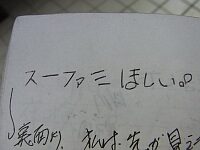 スーファミほしい。
裏面へ 私は先が見え